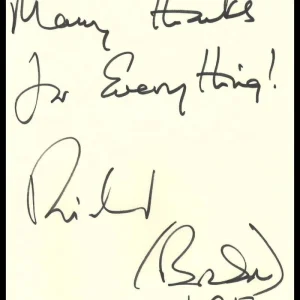 Many thanks
for Everything!
Richard